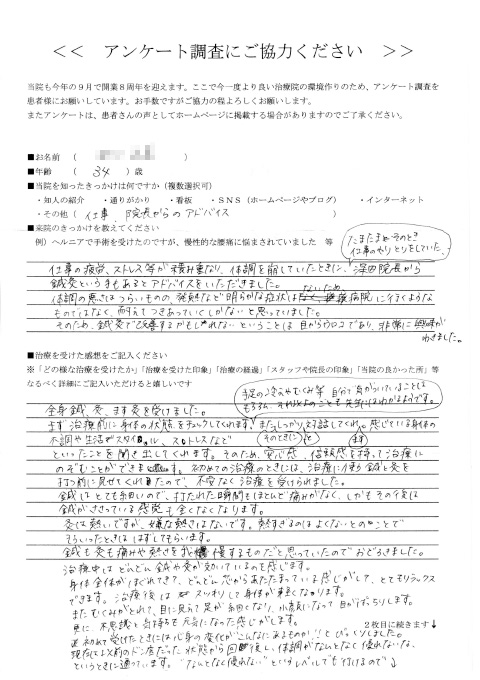 << アンケート調査にご協力ください >>
当院も今年の９月で開業８周年を迎えます。ここで今一度より良い治療院の環境作りのため、アンケート調査を
患者様にお願いしています。お手数ですがご協力の程よろしくお願いします。
またアンケートは、患者さんの声としてホームページに掲載する場合がありますのでご了承ください。
■お名前 （ ）
■年齢 （ 34 ）歳
■当院を知ったきっかけは何ですか（複数選択可）
・知人の紹介 ・通りがかり ・看板 ・ＳＮＳ（ホームページやブログ） ・インターネット
・その他（ 仕事、院長からのアドバイス ）
■来院のきっかけを教えてください
例）ヘルニアで手術を受けたのですが、慢性的な腰痛に悩まされていました 等
たまたまそのとき
仕事のやりとりをしていた、
仕事の疲労、ストレス等が積み重なり、体調を崩していたときに、深田院長から
鍼灸という手もあるとアドバイスをいただきました。
体調の悪さはつらいものの、発熱など明らかな症状はないため、病院に行くような
ものではなく、耐えてつきあっていくしかないと思っていました。
そのため、鍼灸で改善するかもしれないということは目からウロコであり、非常に興味が
わきました。
■治療を受けた感想をご記入ください
※「どの様な治療を受けたか」「治療を受けた印象」「治療の経過」「スタッフや院長の印象」「当院の良かった所」等
なるべく詳細にご記入いただけると嬉しいです
手足の冷えやむくみ等 自分で気づいていることは
もちろん、それ以外のことも先生にはわかるようです。
全身鍼、灸、ます灸を受けました。
まず治療前に身体の状態をチェックしてくれます。またしっかり対話してくれ、感じている身体の
不調や生活スタイル、ストレスなど
といったことを聞き出してくれます。そのため、安心感、信頼感を持って治療に
のぞむことができます。初めての治療のときには、治療に使う鍼と灸を
打つ前に見せてくれたので、不安なく治療を受けられました。
鍼はとても細いので、打たれた瞬間もほとんど痛みがなく、しかもその後は
鍼がささっている感覚も全くなくなります。
灸は熱いですが、嫌な熱さはないです。熱すぎるのはよくないとのことで
もういったときははずしてもらいます。
鍼も灸も痛みや熱さを我慢するものだと思っていたのでおどろきました。
治療中はどんどん鍼や灸が効いているのを感じます。
身体全体がほぐれてきて、どんどん芯からあたたまっている感じがして、とてもリラックス
できます。治療後はスッキリして身体が軽くなります。
またむくみがとれて、目に見えて足が細くなり、小顔になって目がぱっちりします。
更に、不思議と気持ちも元気になった感じがします。
初めて受けたときには心身の変化がこんなにあるものか!!とびっくりしました。
現在は以前のドン底だった状態から回復し、体調がなんとなく優れないな、
というときに通っています。“なんとなく優れない”というレベルでも行けるので↓
２枚目に続きます↓